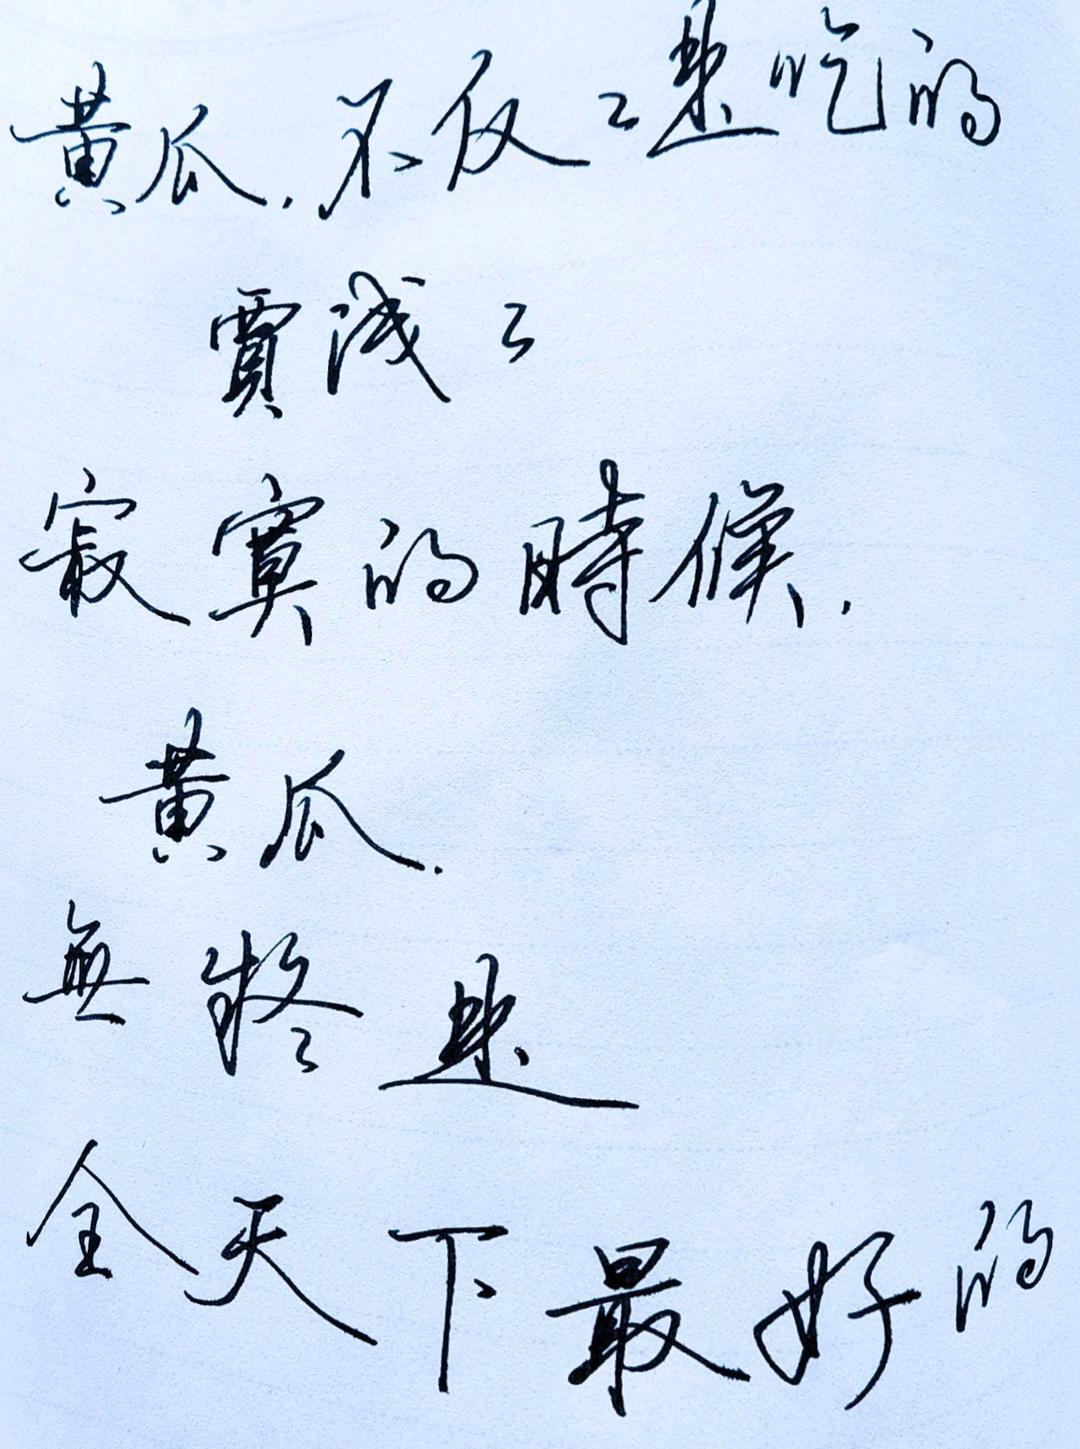 黄瓜，不仅々是吃的
賈浅々
寂寞的時候，
黄瓜，
無疑是
全天下最好的